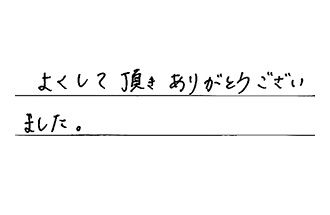 よくして頂きありがとうござい
ました。